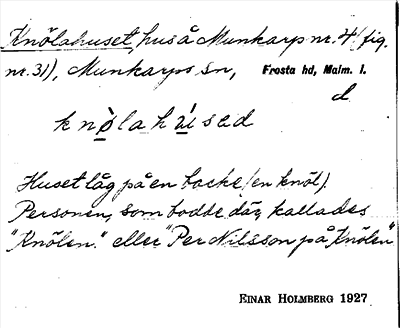 Knölahuset, hus å Munkarp nr. 4 (fig.
nr. 31), Munkarps sn, Frosta hd, Malm. l.
d
knø̀lahú̲sed
Huset låg på en backe (en knöl).
Personen, som bodde där, kallades
"Knölen." eller "Per Nilsson på Knölen"
EINAR HOLMBERG 1927